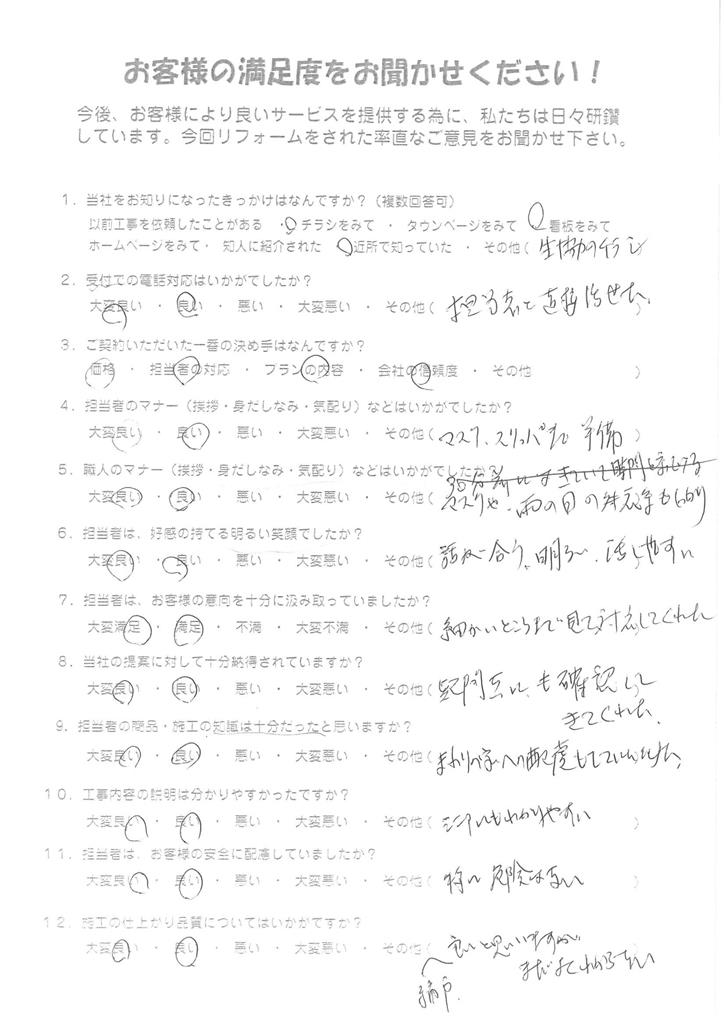 お客様の満足度をお聞かせください！
今後、お客様により良いサービスを提供する為に、私たちは日々研鑽
しています。今回リフォームをされた率直なご意見をお聞かせ下さい。
1．当社をお知りになったきっかけはなんですか？（複数回答可）
以前工事を依頼したことがある ・ チラシをみて ・ タウンページをみて ・ 看板をみて
ホームページをみて・ 知人に紹介された ・ 近所で知っていた ・ その他（ 生協のチラシ
2．受付での電話対応はいかがでしたか？
大変良い ・ 良い ・ 悪い ・ 大変悪い ・ その他（ 担当者と直接話せた。 ）
3．ご契約いただいた一番の決め手はなんですか？
価格 ・ 担当者の対応 ・ プランの内容 ・ 会社の信頼度 ・ その他 ）
4．担当者のマナー（挨拶・身だしなみ・気配り）などはいかがでしたか？
大変良い ・ 良い ・ 悪い ・ 大変悪い ・ その他（ マスク、スリッパまで準備 ）
5．職人のマナー（挨拶・身だしなみ・気配り）などはいかがでしたか
大変良い ・ 良い ・ 悪い ・ 大変悪い ・ その他（ マスクや、雨の日の
6．担当者は、好感の持てる明るい笑顔でしたか？
大変良い ・ 良い ・ 悪い ・ 大変悪い ・ その他（ 話が合う、明るい、話しやすい
7．担当者は、お客様の意向を十分に汲み取っていましたか？
大変満足 ・ 満足 ・ 不満 ・ 大変不満 ・ その他（ 細かいところまで見て対応してくれた
8．当社の提案に対して十分納得されていますか？
大変良い ・ 良い ・ 悪い ・ 大変悪い ・ その他（ 疑問点にも確認して
きてくれた。
9．担当者の商品・施工の知識は十分だったと思いますか？
大変良い ・ 良い ・ 悪い ・ 大変悪い ・ その他（ まわりの家への配慮もしていただけた。
10．工事内容の説明は分かりやすかったですか？
大変良い ・ 良い ・ 悪い ・ 大変悪い ・ その他（ シニアにもわかりやすい ）
11．担当者は、お客様の安全に配慮していましたか？
大変良い ・ 良い ・ 悪い ・ 大変悪い ・ その他（ 特に危険はない ）
12．施工の仕上がり品質についてはいかがですか？
大変良い ・ 良い ・ 悪い ・ 大変悪い ・ その他（ 良いと思いますが、
まだよくわからない
雨戸．